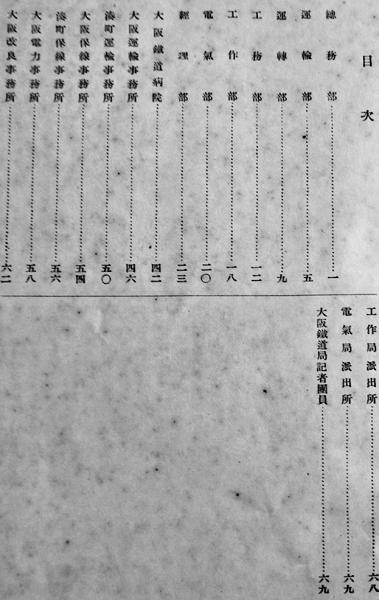 目次
總務部……一
運輸部……五
運轉部……九
工務部……一二
工作部……一八
電氣部……二〇
經理部……二三
大阪鐵道病院……四二
大阪運輸事務所……四六
湊町運輸事務所……五〇
大阪保線事務所……五四
湊町保線事務所……五六
大阪電力事務所……五八
大阪改良事務所……六二
工作局派出所……六八
電氣局派出所……六九
大阪鐵道局記者團員……六九